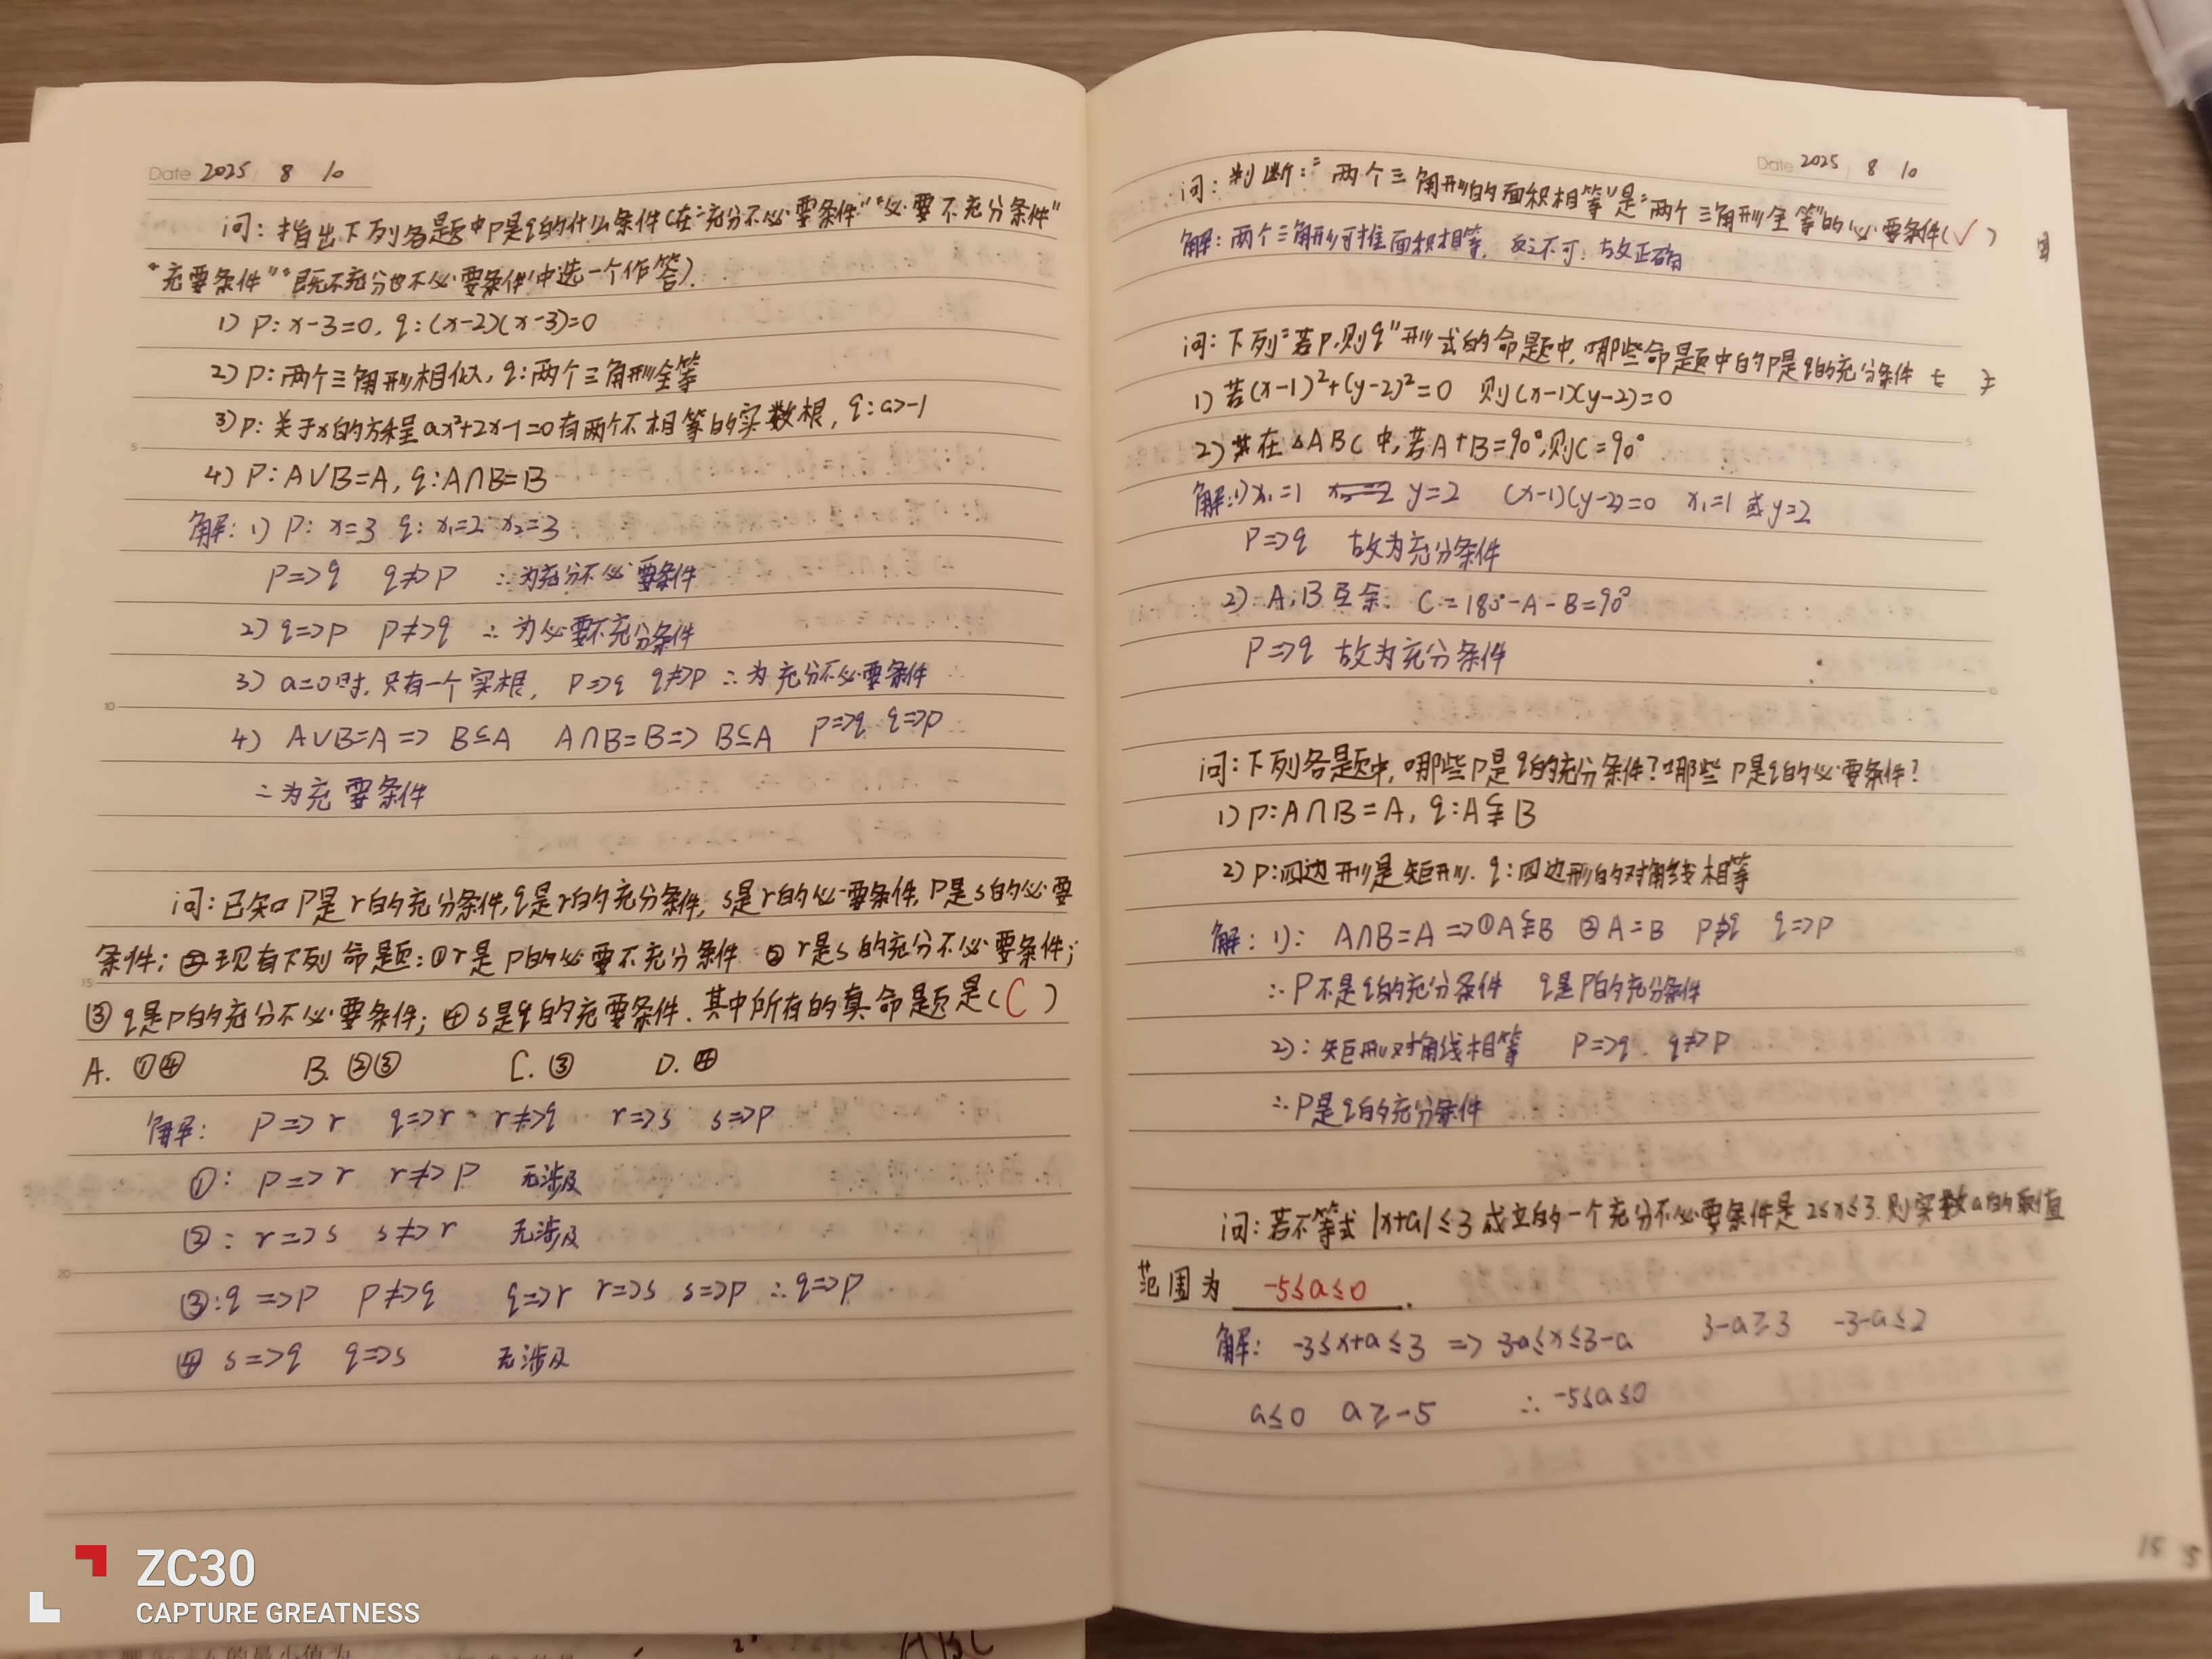 Date 2025 8 10
问：指出下列各题中P是q的什么条件(在"充分不必要条件""必要不充分条件"
"充要条件""既不充分也不必要条件"中选一个作答).
1) P: x-3=0, q: (x-2)(x-3)=0
2) P: 两个三角形相似, q: 两个三角形全等
3) P: 关于x的方程ax²+2x-1=0有两个不相等的实数根, q: a>-1
4) P: A∪B=A, q: A∩B=B
解: 1) P: x=3 q: x₁=2 x₂=3
P=>q q≠>P ∴为充分不必要条件
2) q=>P P≠>q ∴为必要不充分条件
3) a=0时, 只有一个实根, P=>q q≠>P ∴为充分不必要条件
4) A∪B=A => B⊆A A∩B=B=> B⊆A P=>q q=>P
∴为充要条件
问: 已知P是r的充分条件, q是r的充分条件, s是r的必要条件, P是s的必要
条件; 现有下列命题: ①r是P的必要不充分条件 ②r是s的充分不必要条件;
③q是P的充分不必要条件; ④s是q的充要条件. 其中所有的真命题是(C)
A. ①④ B. ②③ C. ③ D. ④
解: P=>r q=>r r≠>q r=>s s=>P
①: P=>r r≠>P 无涉及
②: r=>s s≠>r 无涉及
③: q=>P P≠>q q=>r r=>s s=>P ∴q=>P
④ s=>q q=>s 无涉及
Date 2025 8 10
问: 判断: "两个三角形的面积相等"是"两个三角形全等"的必要条件(✓)
解: 两个三角形可推面积相等, 反之不可, 故正确
问: 下列"若P, 则q"形式的命题中, 哪些命题中的P是q的充分条件
1) 若(x-1)²+(y-2)²=0 则(x-1)(y-2)=0
2) 在△ABC中, 若A+B=90°, 则C=90°
解: 1) x₁=1 y=2 (x-1)(y-2)=0 x₁=1 或y=2
P=>q 故为充分条件
2) A, B互余. C=180°-A-B=90°
P=>q 故为充分条件
问: 下列各题中, 哪些P是q的充分条件? 哪些P是q的必要条件?
1) P: A∩B=A, q: A⫋B
2) P: 四边形是矩形. q: 四边形的对角线相等
解: 1): A∩B=A =>①A⫋B ②A=B P≠>q q=>P
∴P不是q的充分条件 q是P的充分条件
2): 矩形对角线相等 P=>q q≠>P
∴P是q的充分条件
问: 若不等式|x+a|≤3成立的一个充分不必要条件是2≤x≤3. 则实数a的取值
范围为 -5≤a≤0.
解: -3≤x+a≤3 => 3-a≤x≤3-a 3-a≥3 -3-a≤2
a≤0 a≥-5 ∴-5≤a≤0
15
ZC30
CAPTURE GREATNESS
ABC